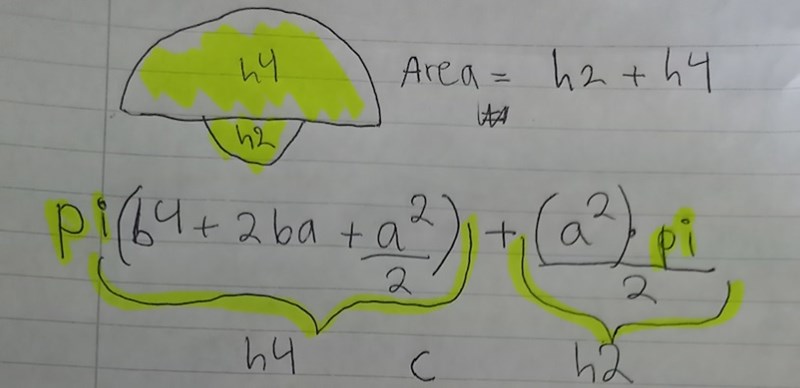 h4
Area = h2 + h4
h2
pi(b4 + 2ba + a²/2) + (a²)·pi/2
h4 c h2